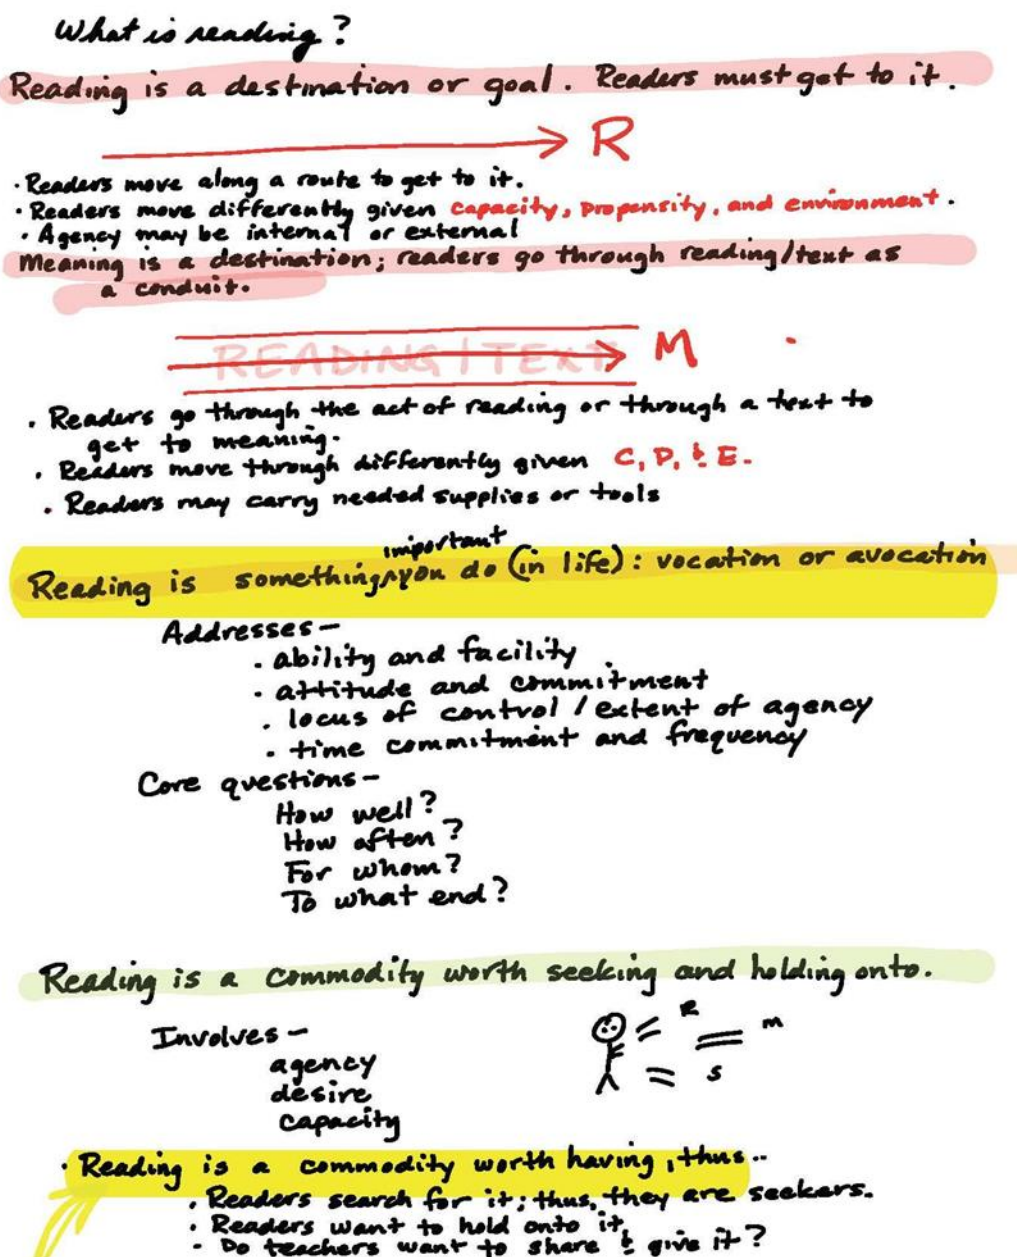 What is reading?
Reading is a destination or goal. Readers must get to it.
R
· Readers move along a route to get to it.
· Readers move differently given capacity, propensity, and environment.
· Agency may be internal or external
Meaning is a destination; readers go through reading/text as
a conduit.
READING/TEXT M
· Readers go through the act of reading or through a text to
get to meaning.
· Readers move through differently given C, P, & E.
· Readers may carry needed supplies or tools
important
Reading is something you do (in life): vocation or avocation
Addresses—
· ability and facility
· attitude and commitment
· locus of control / extent of agency
· time commitment and frequency
Core questions—
How well?
How often?
For whom?
To what end?
Reading is a commodity worth seeking and holding onto.
Involves—
R
M
agency
S
desire
capacity
· Reading is a commodity worth having, thus..
· Readers search for it; thus, they are seekers.
· Readers want to hold onto it.
· Do teachers want to share & give it?